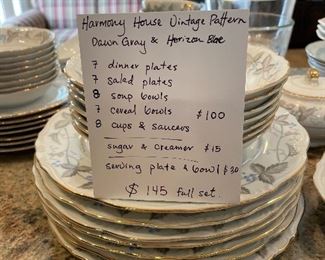 Harmony House Vintage Pattern
Dawn Gray & Horizon Blue
7 dinner plates
7 salad plates
8 soup bowls
7 cereal bowls $100
8 cups & saucers
sugar & creamer $15
serving plate & bowl $30
$145 full set.